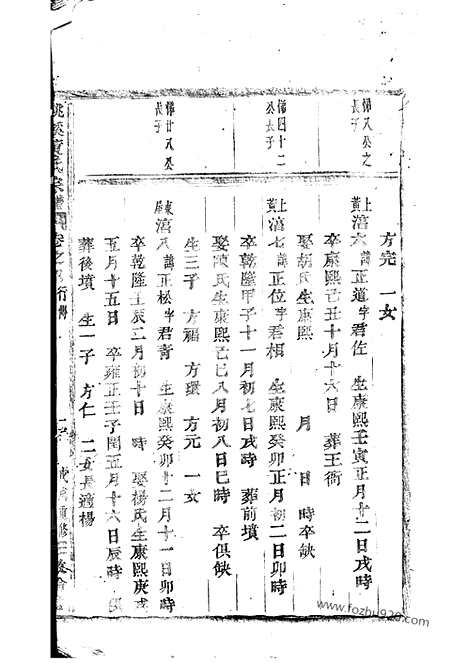 方完 一女
傳八公之長子
上黃 滈六 諱正道字君佐 生康熙壬寅正月十二日戌時
卒康熙己丑十月十六日 葬王衙
娶胡氏生康熙 月 日 時卒缺
傳四十二公長子
上黃 滈七 諱正位字君相 生康熙癸卯正月初二日卯時
卒乾隆甲子十一月初七日戌時 葬前墳
娶陳氏生康熙己巳八月初八日巳時 卒俱缺
生三子 方福 方環 方元 一女
傳廿八公長子
東屋 滈八 諱正松字君青 生康熙癸卯十二月十一日卯時
卒乾隆壬辰二月初十日 時 娶楊氏生康熙庚戌
五月十五日 卒雍正壬子閏五月十六日辰時
葬後墳 生一子 方仁 二女長適楊
氏宗譜 卷之 行傳
重修
www.fozhu920.com